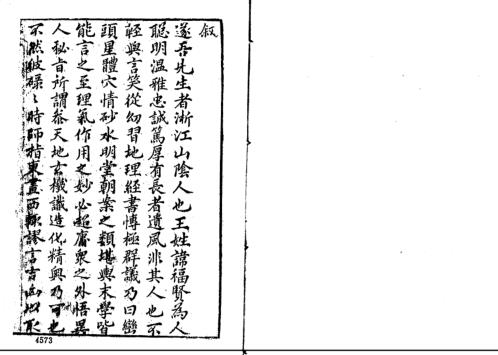 叙
遂吾先生者浙江山陰人也王姓諱福賢為人
聰明溫雅忠誠篤厚有長者遺風非其人也不
輕與言笑從幼習地理經書博極群議乃曰巒
頭星體穴情砂水明堂朝案之類堪輿末學皆
能言之至理氣作用之妙必超庸衆之外悟異
人秘旨所謂泰天地玄機識造化精奧乃可也
不然彼碌々時師指東畫西輒謬言吉凶以取
4573